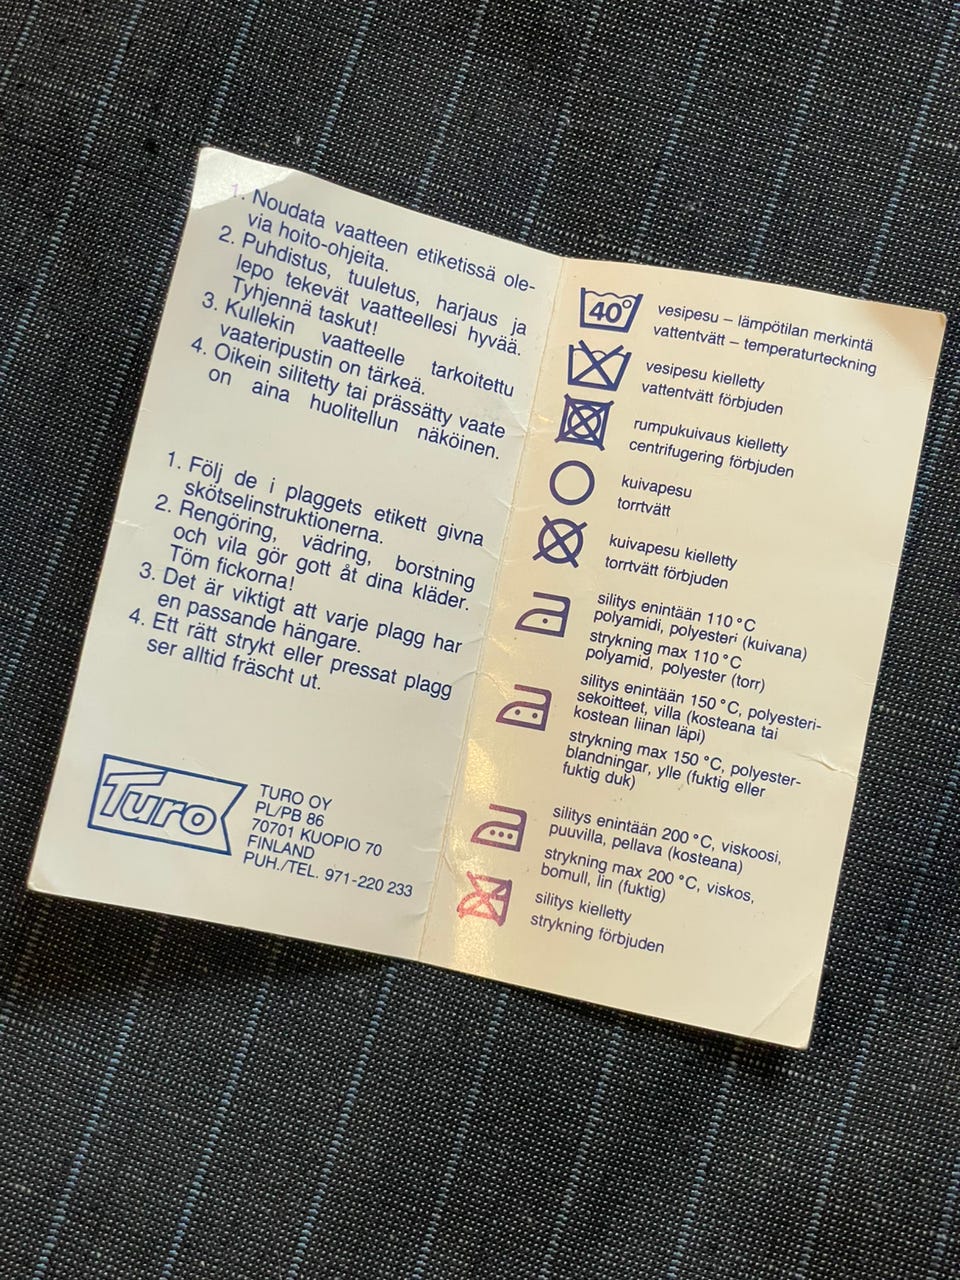 1. Noudata vaatteen etiketissä ole-
via hoito-ohjeita.
2. Puhdistus, tuuletus, harjaus ja
lepo tekevät vaatteellesi hyvää.
Tyhjennä taskut!
3. Kullekin vaatteelle tarkoitettu
vaateripustin on tärkeä.
4. Oikein silitetty tai prässätty vaate
on aina huolitellun näköinen.
1. Följ de i plaggets etikett givna
skötselinstruktionerna.
2. Rengöring, vädring, borstning
och vila gör gott åt dina kläder.
Töm fickorna!
3. Det är viktigt att varje plagg har
en passande hängare.
4. Ett rätt strykt eller pressat plagg
ser alltid fräscht ut.
Turo
TURO OY
PL/PB 86
70701 KUOPIO 70
FINLAND
PUH./TEL. 971-220 233
40°
vesipesu – lämpötilan merkintä
vattentvätt – temperaturteckning
vesipesu kielletty
vattentvätt förbjuden
rumpukuivaus kielletty
centrifugering förbjuden
kuivapesu
torrtvätt
kuivapesu kielletty
torrtvätt förbjuden
silitys enintään 110 °C
polyamidi, polyesteri (kuivana)
strykning max 110 °C
polyamid, polyester (torr)
silitys enintään 150 °C, polyesteri-
sekoitteet, villa (kosteana tai
kostean liinan läpi)
strykning max 150 °C, polyester-
blandningar, ylle (fuktig eller
fuktig duk)
silitys enintään 200 °C, viskoosi,
puuvilla, pellava (kosteana)
strykning max 200 °C, viskos,
bomull, lin (fuktig)
silitys kielletty
strykning förbjuden